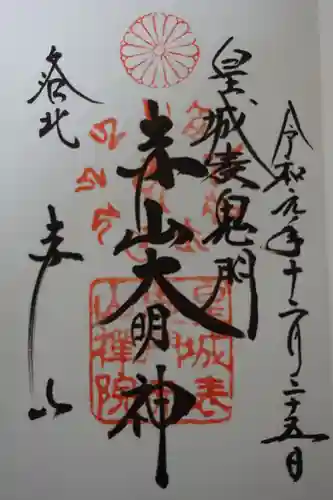 令和元年十二月二十五日
皇城表鬼門
赤山大明神
洛北
赤山
皇城表
山禅院